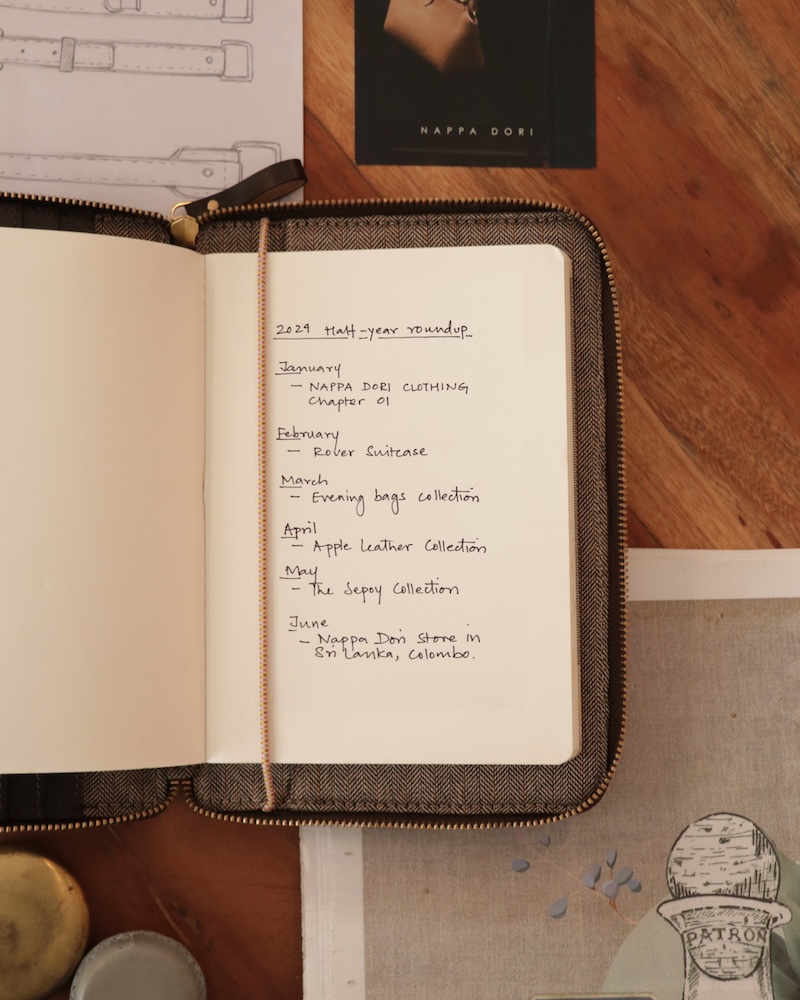 NAPPA DORI
2024 Half-year roundup
January
- NAPPA DORI CLOTHING
Chapter 01
February
- Rover Suitcase
March
- Evening bags collection
April
- Apple leather Collection
May
- The Sepoy Collection
June
- Nappa Dori Store in
Sri Lanka, Colombo.
PATRON